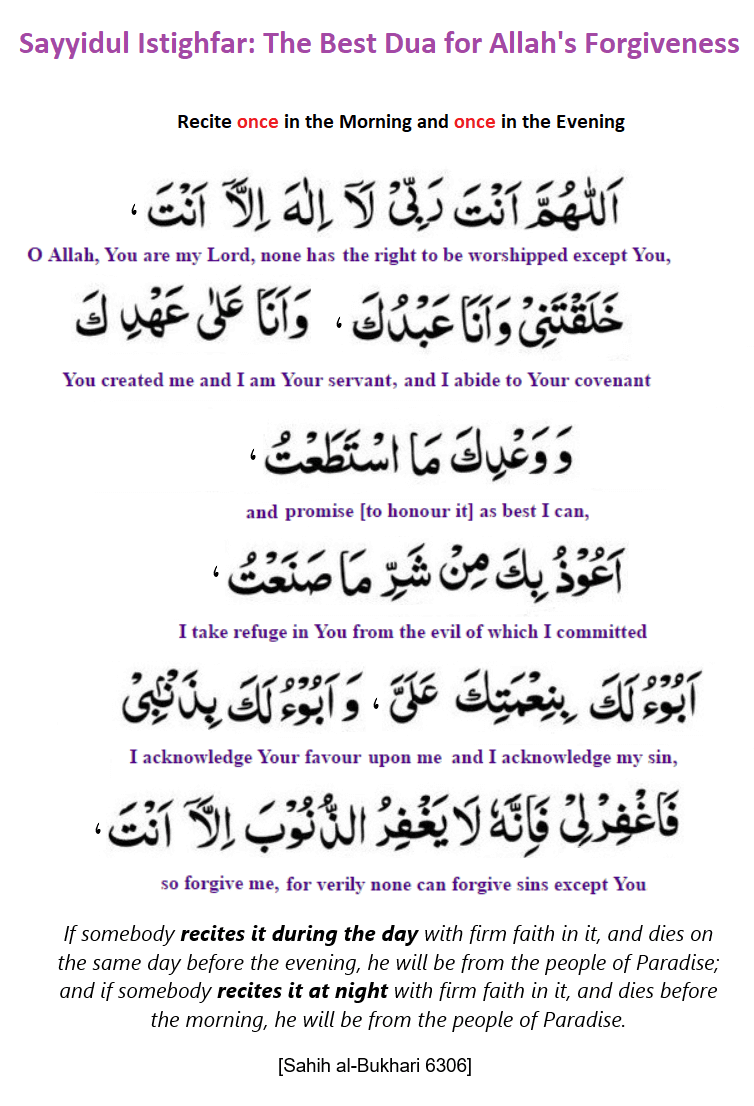 Sayyidul Istighfar: The Best Dua for Allah's Forgiveness
Recite once in the Morning and once in the Evening
اَللّٰهُمَّ اَنْتَ رَبِّيْ لَآ اِلٰهَ اِلَّآ اَنْتَ ،
O Allah, You are my Lord, none has the right to be worshipped except You,
خَلَقْتَنِيْ وَاَنَا عَبْدُكَ ، وَاَنَا عَلٰى عَهْدِكَ
You created me and I am Your servant, and I abide to Your covenant
وَ وَعْدِكَ مَا اسْتَطَعْتُ ،
and promise [to honour it] as best I can,
اَعُوْذُ بِكَ مِنْ شَرِّ مَا صَنَعْتُ ،
I take refuge in You from the evil of which I committed
اَبُوْٓءُ لَكَ بِنِعْمَتِكَ عَلَيَّ ، وَاَبُوْٓءُ لَكَ بِذَنْۢبِيْ
I acknowledge Your favour upon me and I acknowledge my sin,
فَاغْفِرْلِيْ فَاِنَّهٗ لَا يَغْفِرُ الذُّنُوْبَ اِلَّآ اَنْتَ ،
so forgive me, for verily none can forgive sins except You
If somebody recites it during the day with firm faith in it, and dies on
the same day before the evening, he will be from the people of Paradise;
and if somebody recites it at night with firm faith in it, and dies before
the morning, he will be from the people of Paradise.
[Sahih al-Bukhari 6306]